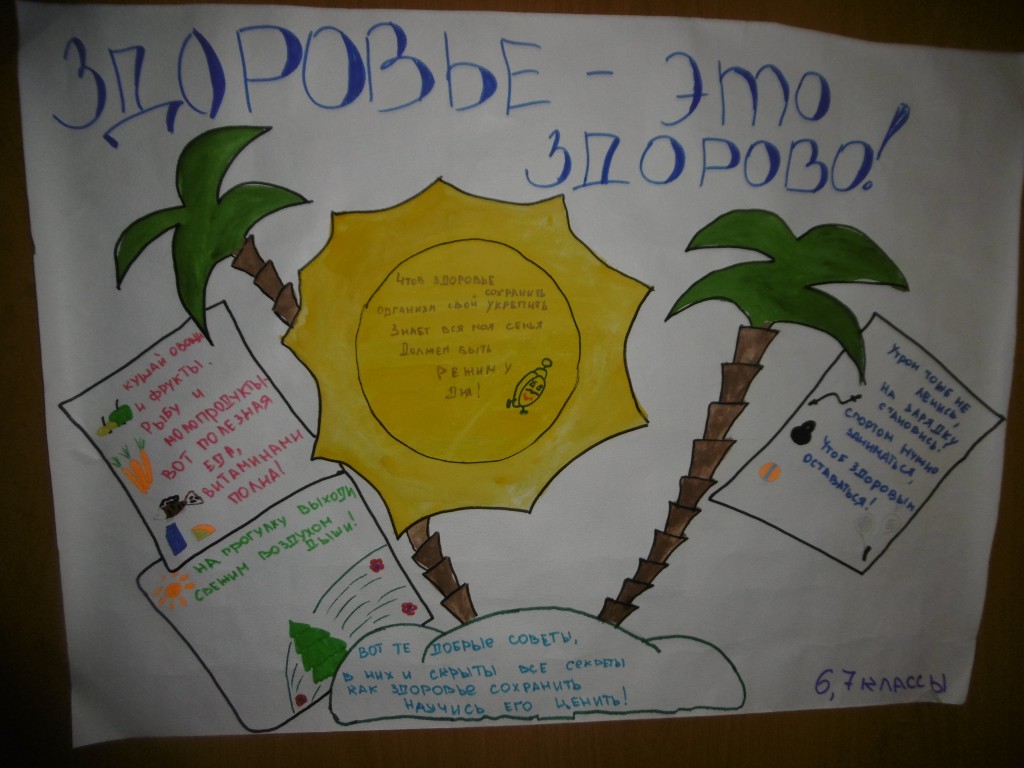 ЗДОРОВЬЕ - ЭТО
ЗДОРОВО!
ЧТОБ ЗДОРОВЬЕ
СОХРАНИТЬ
ОРГАНИЗМ СВОЙ УКРЕПИТЬ
ЗНАЕТ ВСЯ МОЯ СЕМЬЯ
ДОЛЖЕН БЫТЬ
РЕЖИМ У
ДНЯ!
КУШАЙ ОВОЩИ
И ФРУКТЫ.
РЫБУ И
МОЛОПРОДУКТЫ
ВОТ ПОЛЕЗНАЯ
ЕДА,
ВИТАМИНАМИ
ПОЛНА!
НА ПРОГУЛКУ ВЫХОДИ
СВЕЖИМ ВОЗДУХОМ
ДЫШИ!
УТРОМ ТОЫБ НЕ
ЛЕНИСЬ,
НА ЗАРЯДКУ
СТАНОВИСЬ!
СПОРТОМ НУЖНО
ЗАНИМАТЬСЯ,
ЧТОБ ЗДОРОВЫМ
ОСТАВАТЬСЯ!
ВОТ ТЕ ДОБРЫЕ СОВЕТЫ,
В НИХ И СКРЫТЫ ВСЕ СЕКРЕТЫ
КАК ЗДОРОВЬЕ СОХРАНИТЬ
НАУЧИСЬ ЕГО ЦЕНИТЬ!
6,7 КЛАССЫ